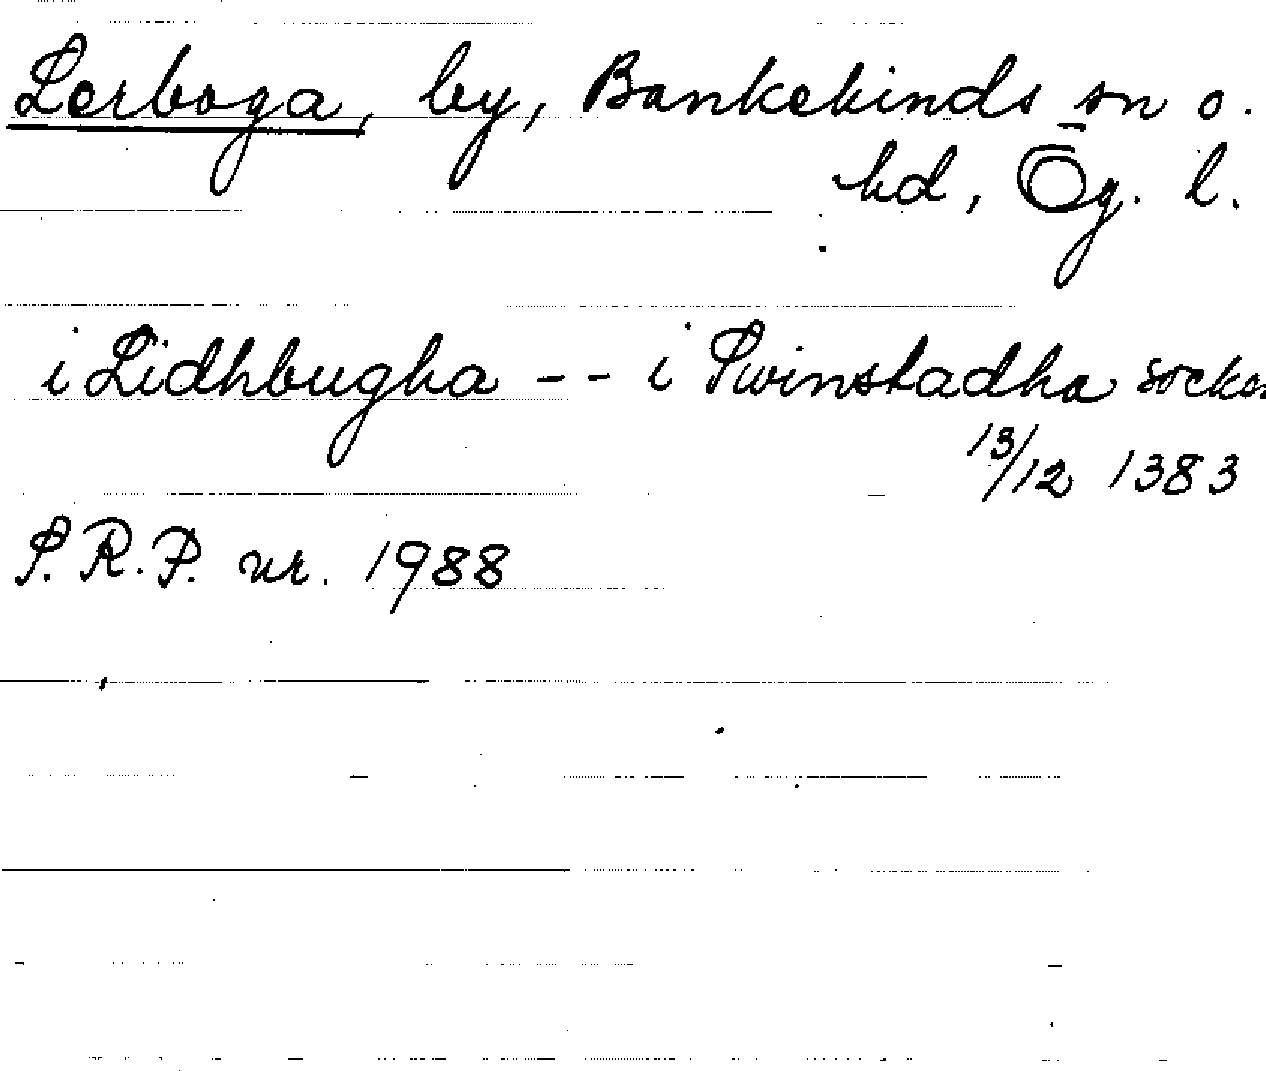 Lerboga, by, Bankekinds sn o.
hd, Ög. l.
i Lidhbugha -- i Swinstadha socken
13/12 1383
S.R.P. nr. 1988